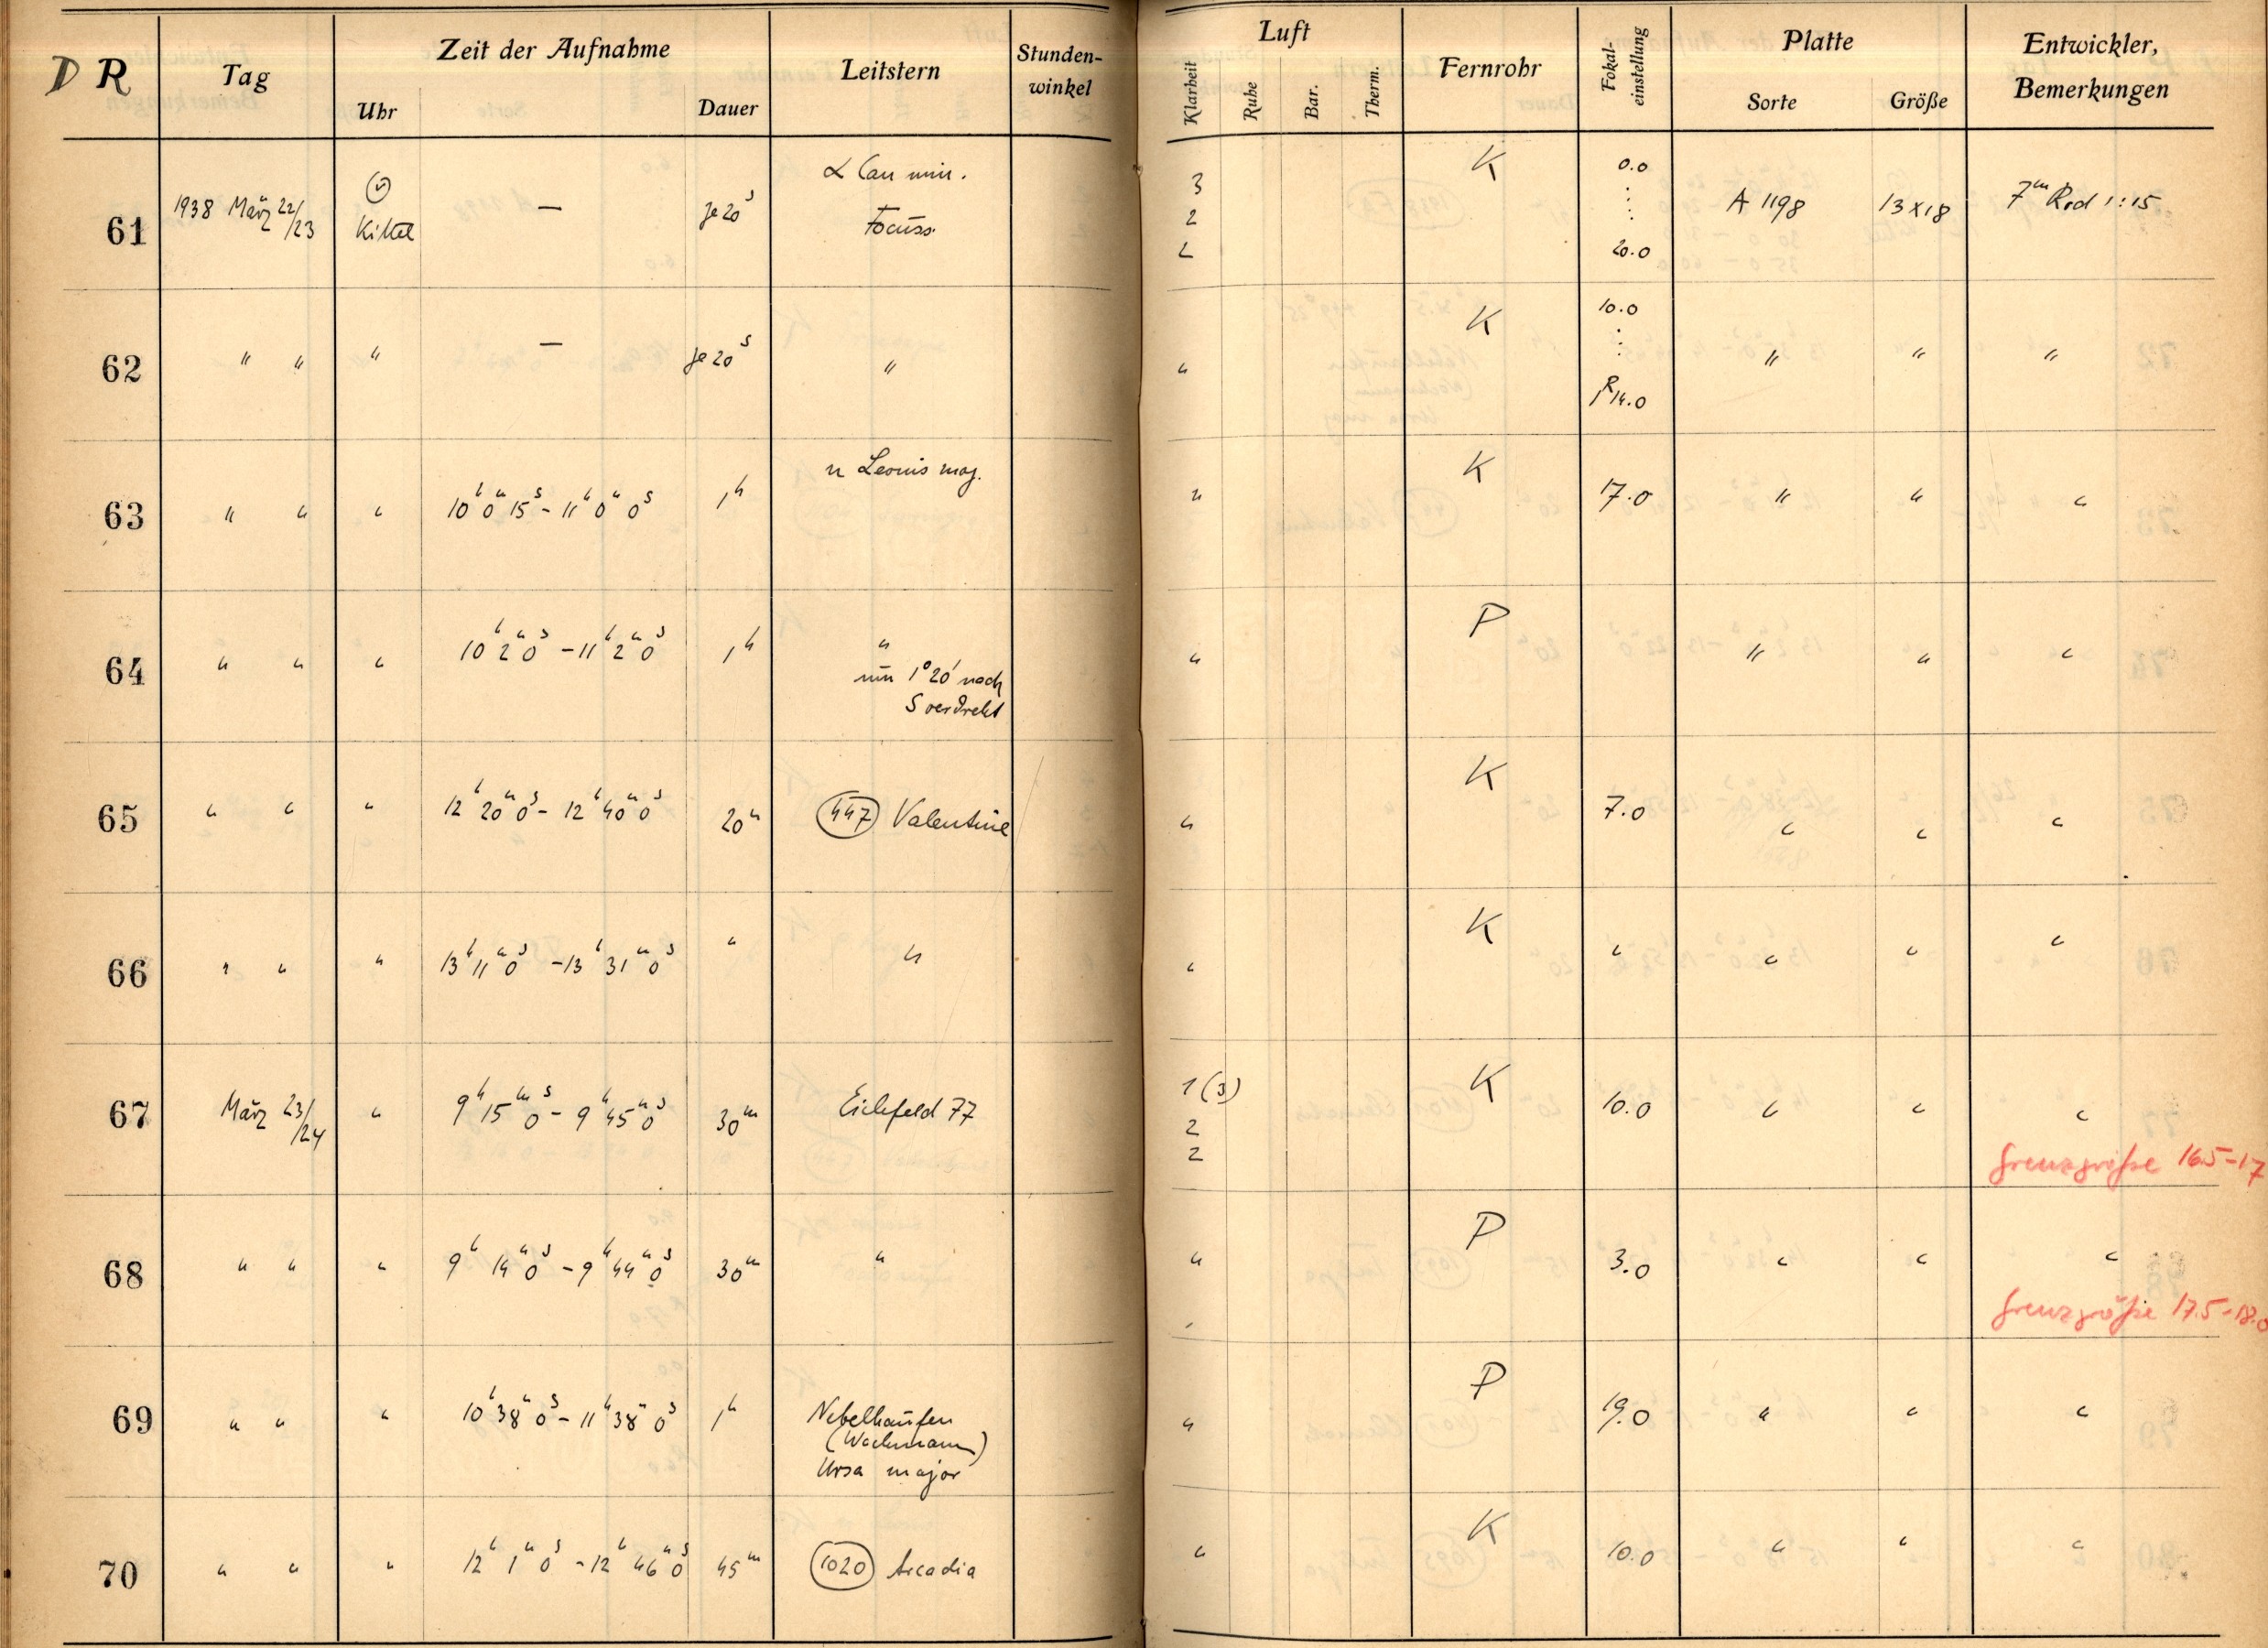 D R Tag Zeit der Aufnahme Leitstern Stunden-winkel Luft Fernrohr Fokal-einstellung Platte Entwickler, Bemerkungen
Uhr Dauer Klarheit Ruhe Bar. Therm. Sorte Größe
61 1938 März 22/23 Kittel — je 20s α Can min. Focuss. 3 2 2 K 0.0 : : 20.0 A 1198 13x18 7m Rod 1:15
62 " " " — je 20s " " K 10.0 : : 14.0 " " "
63 " " " 10h 0m 15s - 11h 0m 0s 1h n Leonis maj. " K 17.0 " " "
64 " " " 10h 2m 0s - 11h 2m 0s 1h " um 1° 20' nach S verdreht " P " " "
65 " " " 12h 20m 0s - 12h 40m 0s 20m 447 Valentine " K 7.0 " " "
66 " " " 13h 11m 0s - 13h 31m 0s " " " K " " " "
67 März 23/24 " 9h 15m 0s - 9h 45m 0s 30m Eichfeld 77 1 (3) 2 2 K 10.0 " " "
Grenzgröße 16.5-17
68 " " " 9h 14m 0s - 9h 44m 0s 30m " " P 3.0 " " "
Grenzgröße 17.5-18.0
69 " " " 10h 38m 0s - 11h 38m 0s 1h Nebelhaufen (Wachmann) Ursa major " P 19.0 " " "
70 " " " 12h 1m 0s - 12h 46m 0s 45m 1020 Arcadia " K 10.0 " " "